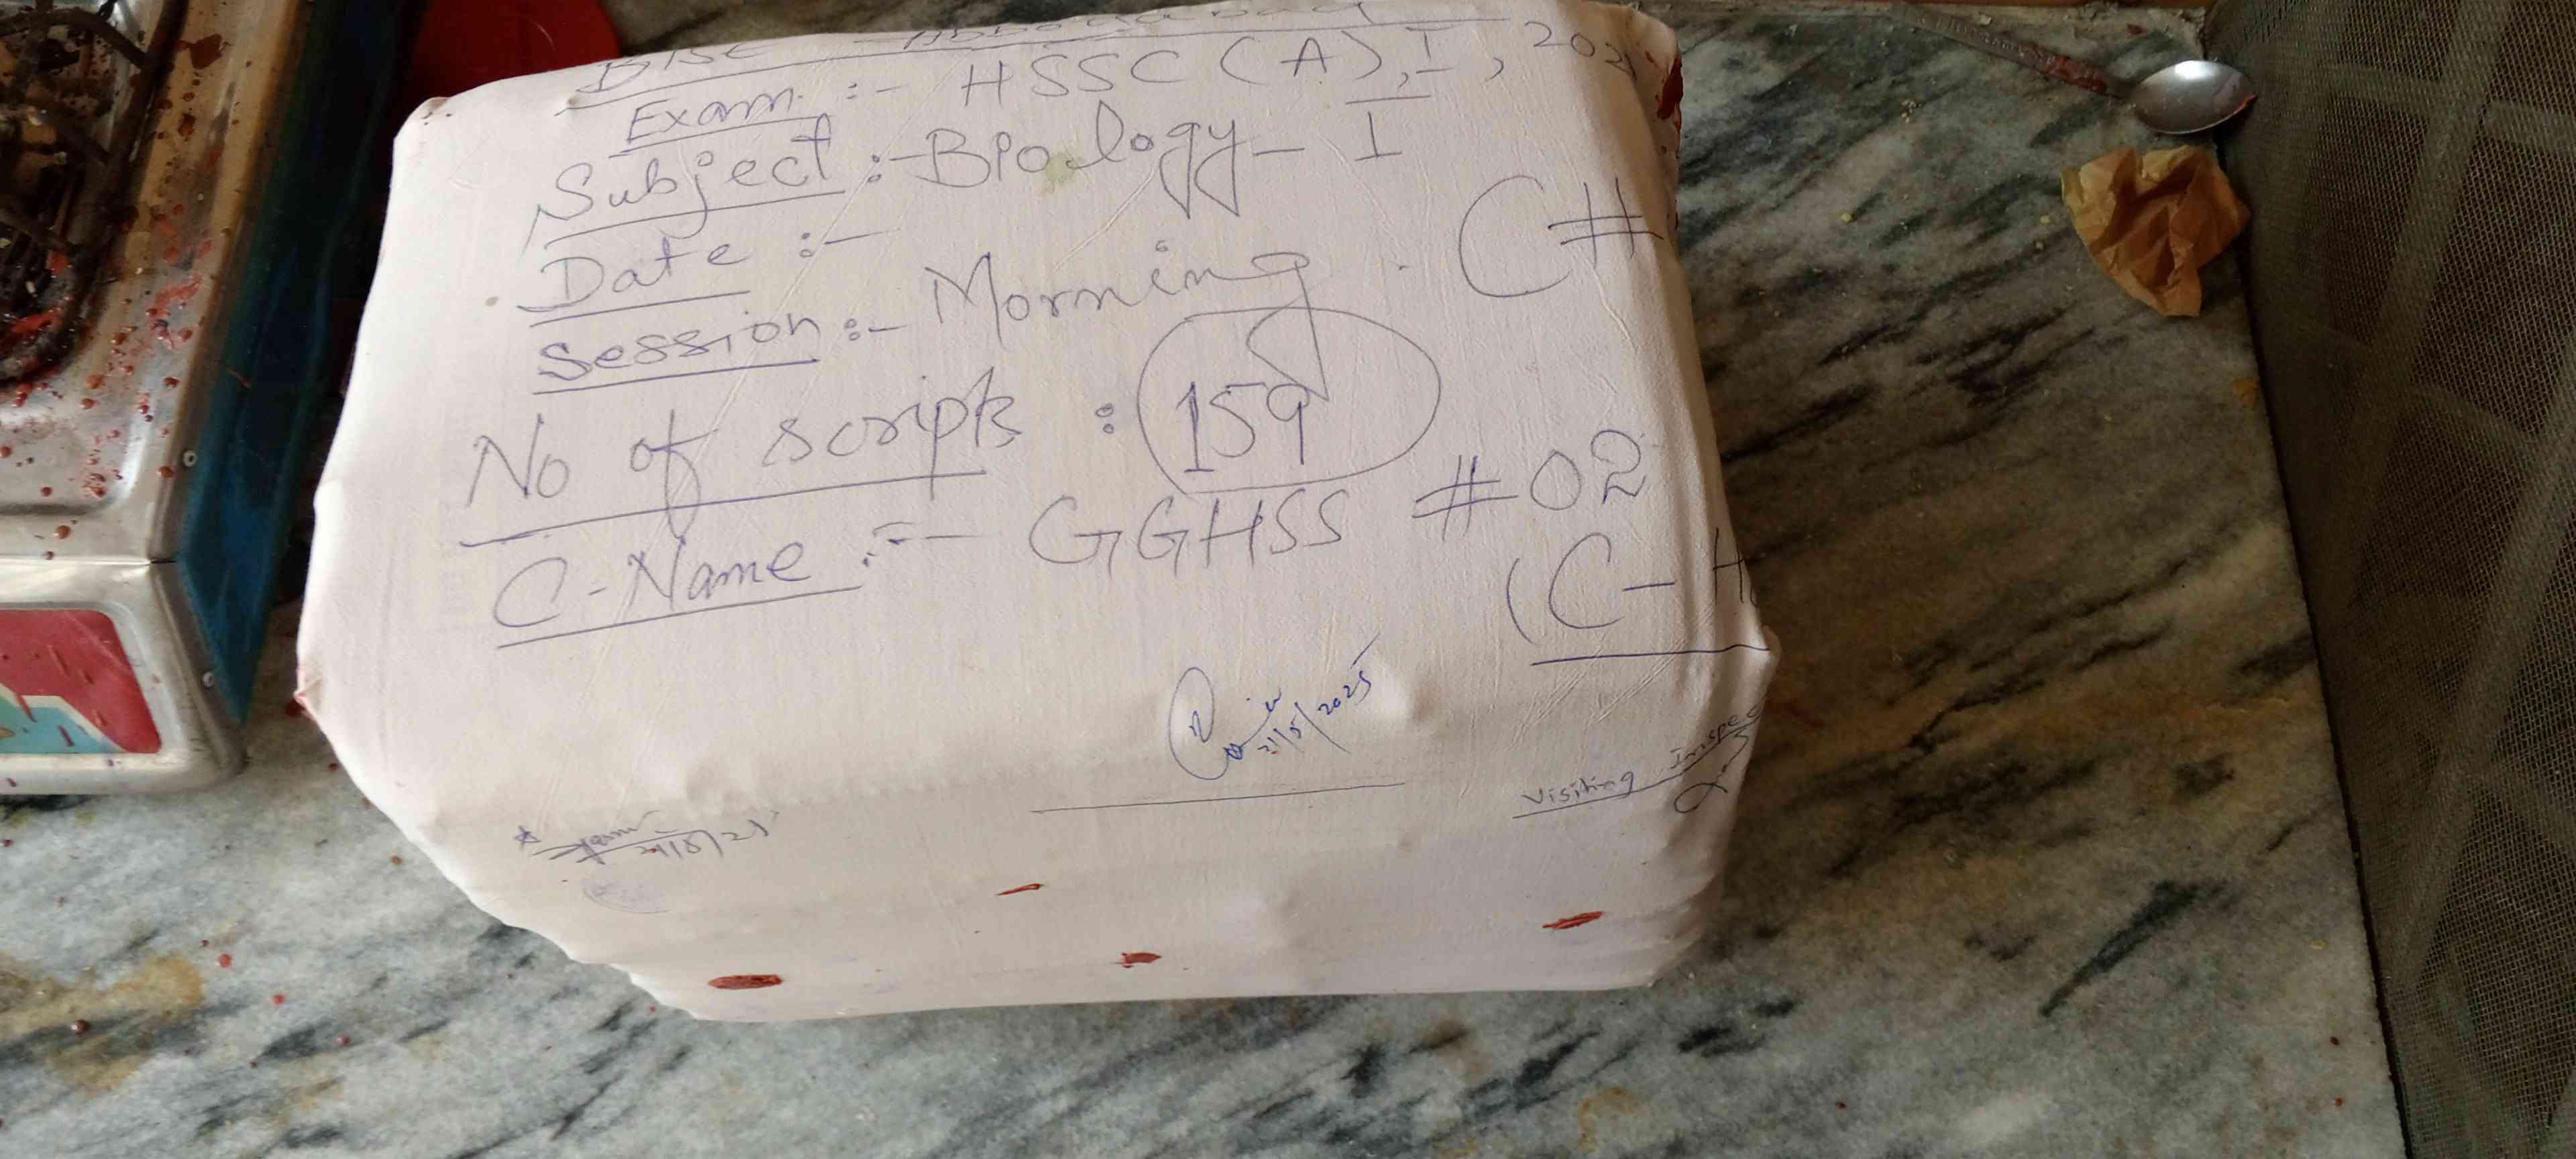 BISE Abbottabad
Exam :- HSSC (A), I, 202
Subject :- Biology - I
Date :-
C#
Session :- Morning
No of scripts : 159
C-Name :- GGHSS #02
(C-H
21/5/2025
Visiting Inspec